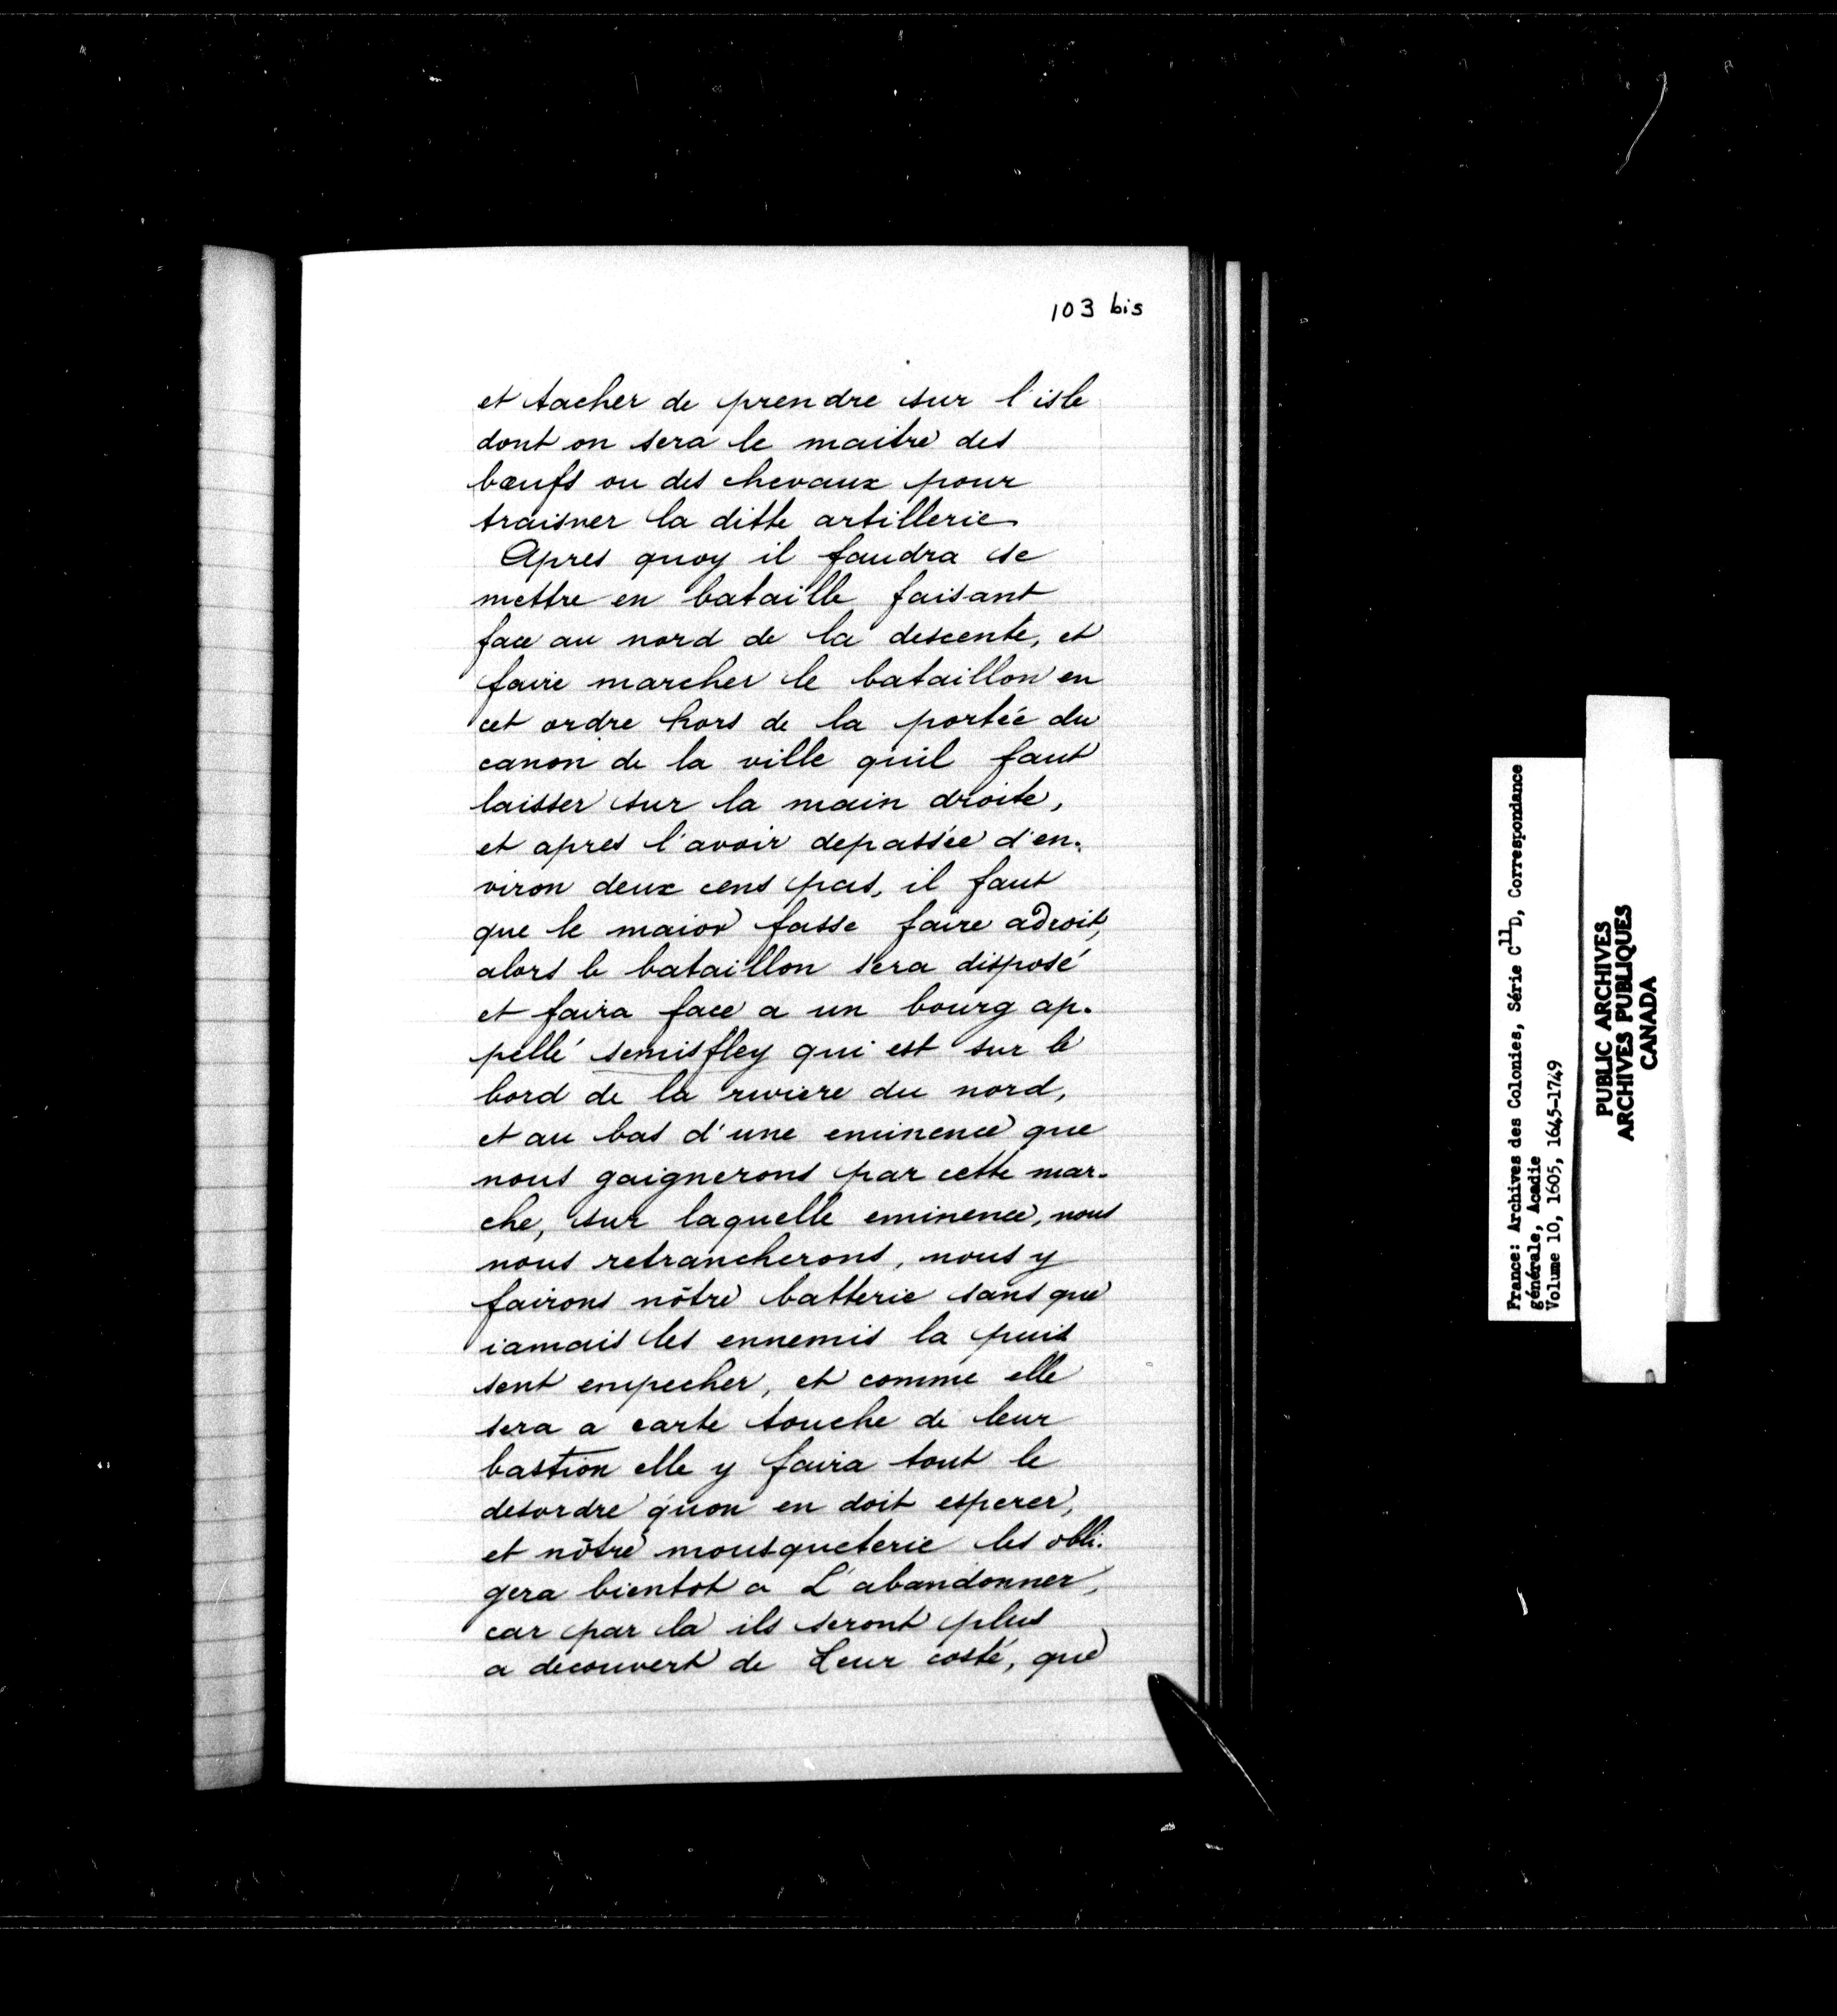 103 bis
et tacher de prendre sur l'isle
dont on sera le maitre des
bœufs ou des chevaux pour
traisner la ditte artillerie
Apres quoy il faudra se
mettre en bataille faisant
face au nord de la descente, et
faire marcher le bataillon en
cet ordre hors de la portée du
canon de la ville quil faut
laisser sur la main droite,
et apres l'avoir depassée d'en-
viron deux cens pas, il faut
que le maior fasse faire adroit,
alors le bataillon sera disposé
et faira face a un bourg ap-
pellé semisfley qui est sur le
bord de la riviere du nord,
et au bas d'une eminence que
nous gaignerons par cette mar-
che, sur laquelle eminence, nous
nous retrancherons, nous y
fairons nôtre batterie sans que
iamais les ennemis la puis
sent empecher, et comme elle
sera a carte touche de leur
bastion elle y faira tout le
desordre qu'on en doit esperer,
et nôtre mousqueterie les obli-
gera bientot a L'abandonner,
car par la ils seront plus
a decouvert de Leur costé, que
France: Archives des Colonies, Série C11D, Correspondance
générale, Acadie
Volume 10, 1605, 1645-1749
PUBLIC ARCHIVES
ARCHIVES PUBLIQUES
CANADA